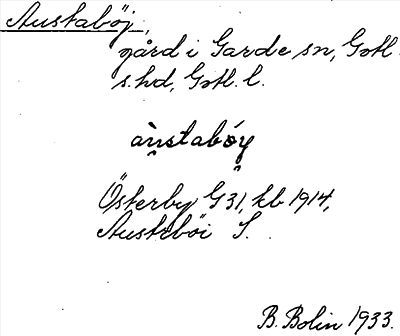 Austaböj,
gård i Garde sn, Gotl.
s. hd, Gotl. l.
àu̯stabóy̯
Österby G 31, kb 1914,
Austeböi S.
B. Bolin 1933.